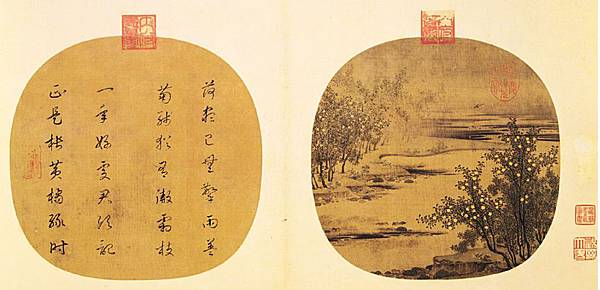 荷盡已無擎雨蓋
菊殘猶有傲霜枝
一年好景君須記
正是橙黃橘綠時